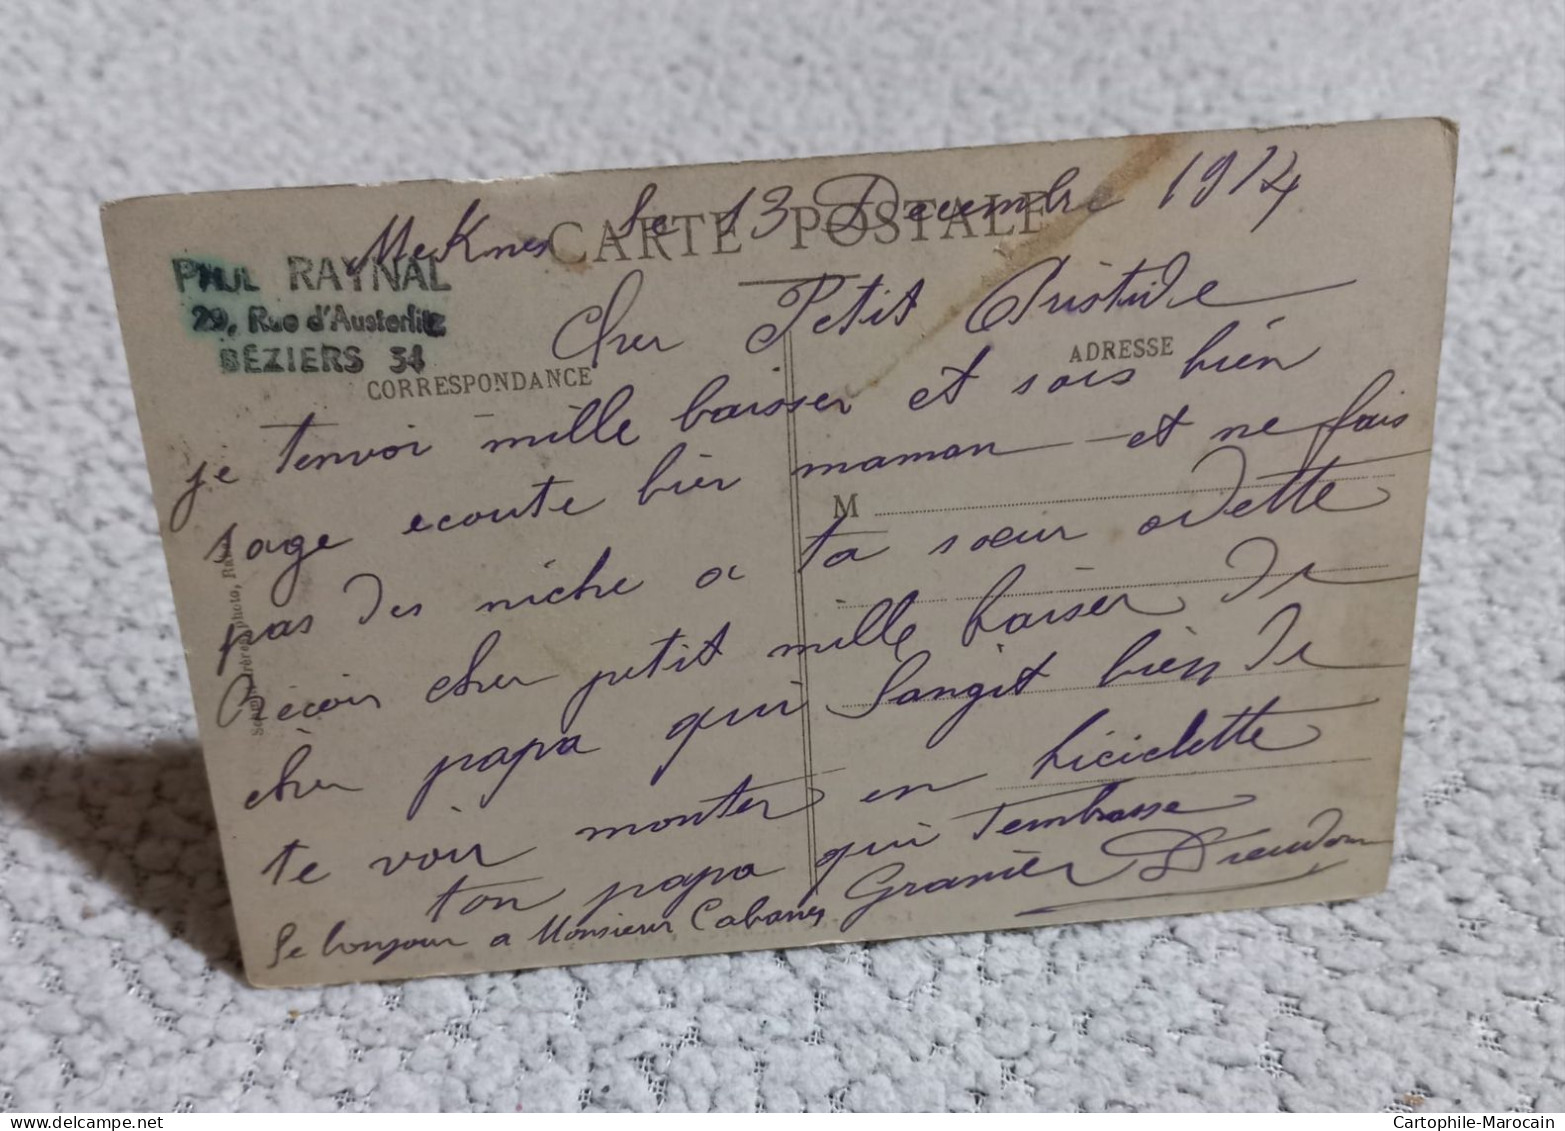 CARTE POSTALE
MeKnes le 13 Decembre 1914
PAUL RAYNAL
29, Rue d'Austerlitz
BÉZIERS 34
CORRESPONDANCE
ADRESSE
M
Cher Petit Aristide
je tenvoi mille baisser et sois bien
sage ecoute bien maman et ne fais
pas des niche a ta sœur odette
Récoir cher petit mille baiser de
cher papa qui langit bien de
te voir monter en biciclette
ton papa qui tembrasse
Granier
le bonjour a Monsieur Cabanes
photo,
Cartophile-Marocain